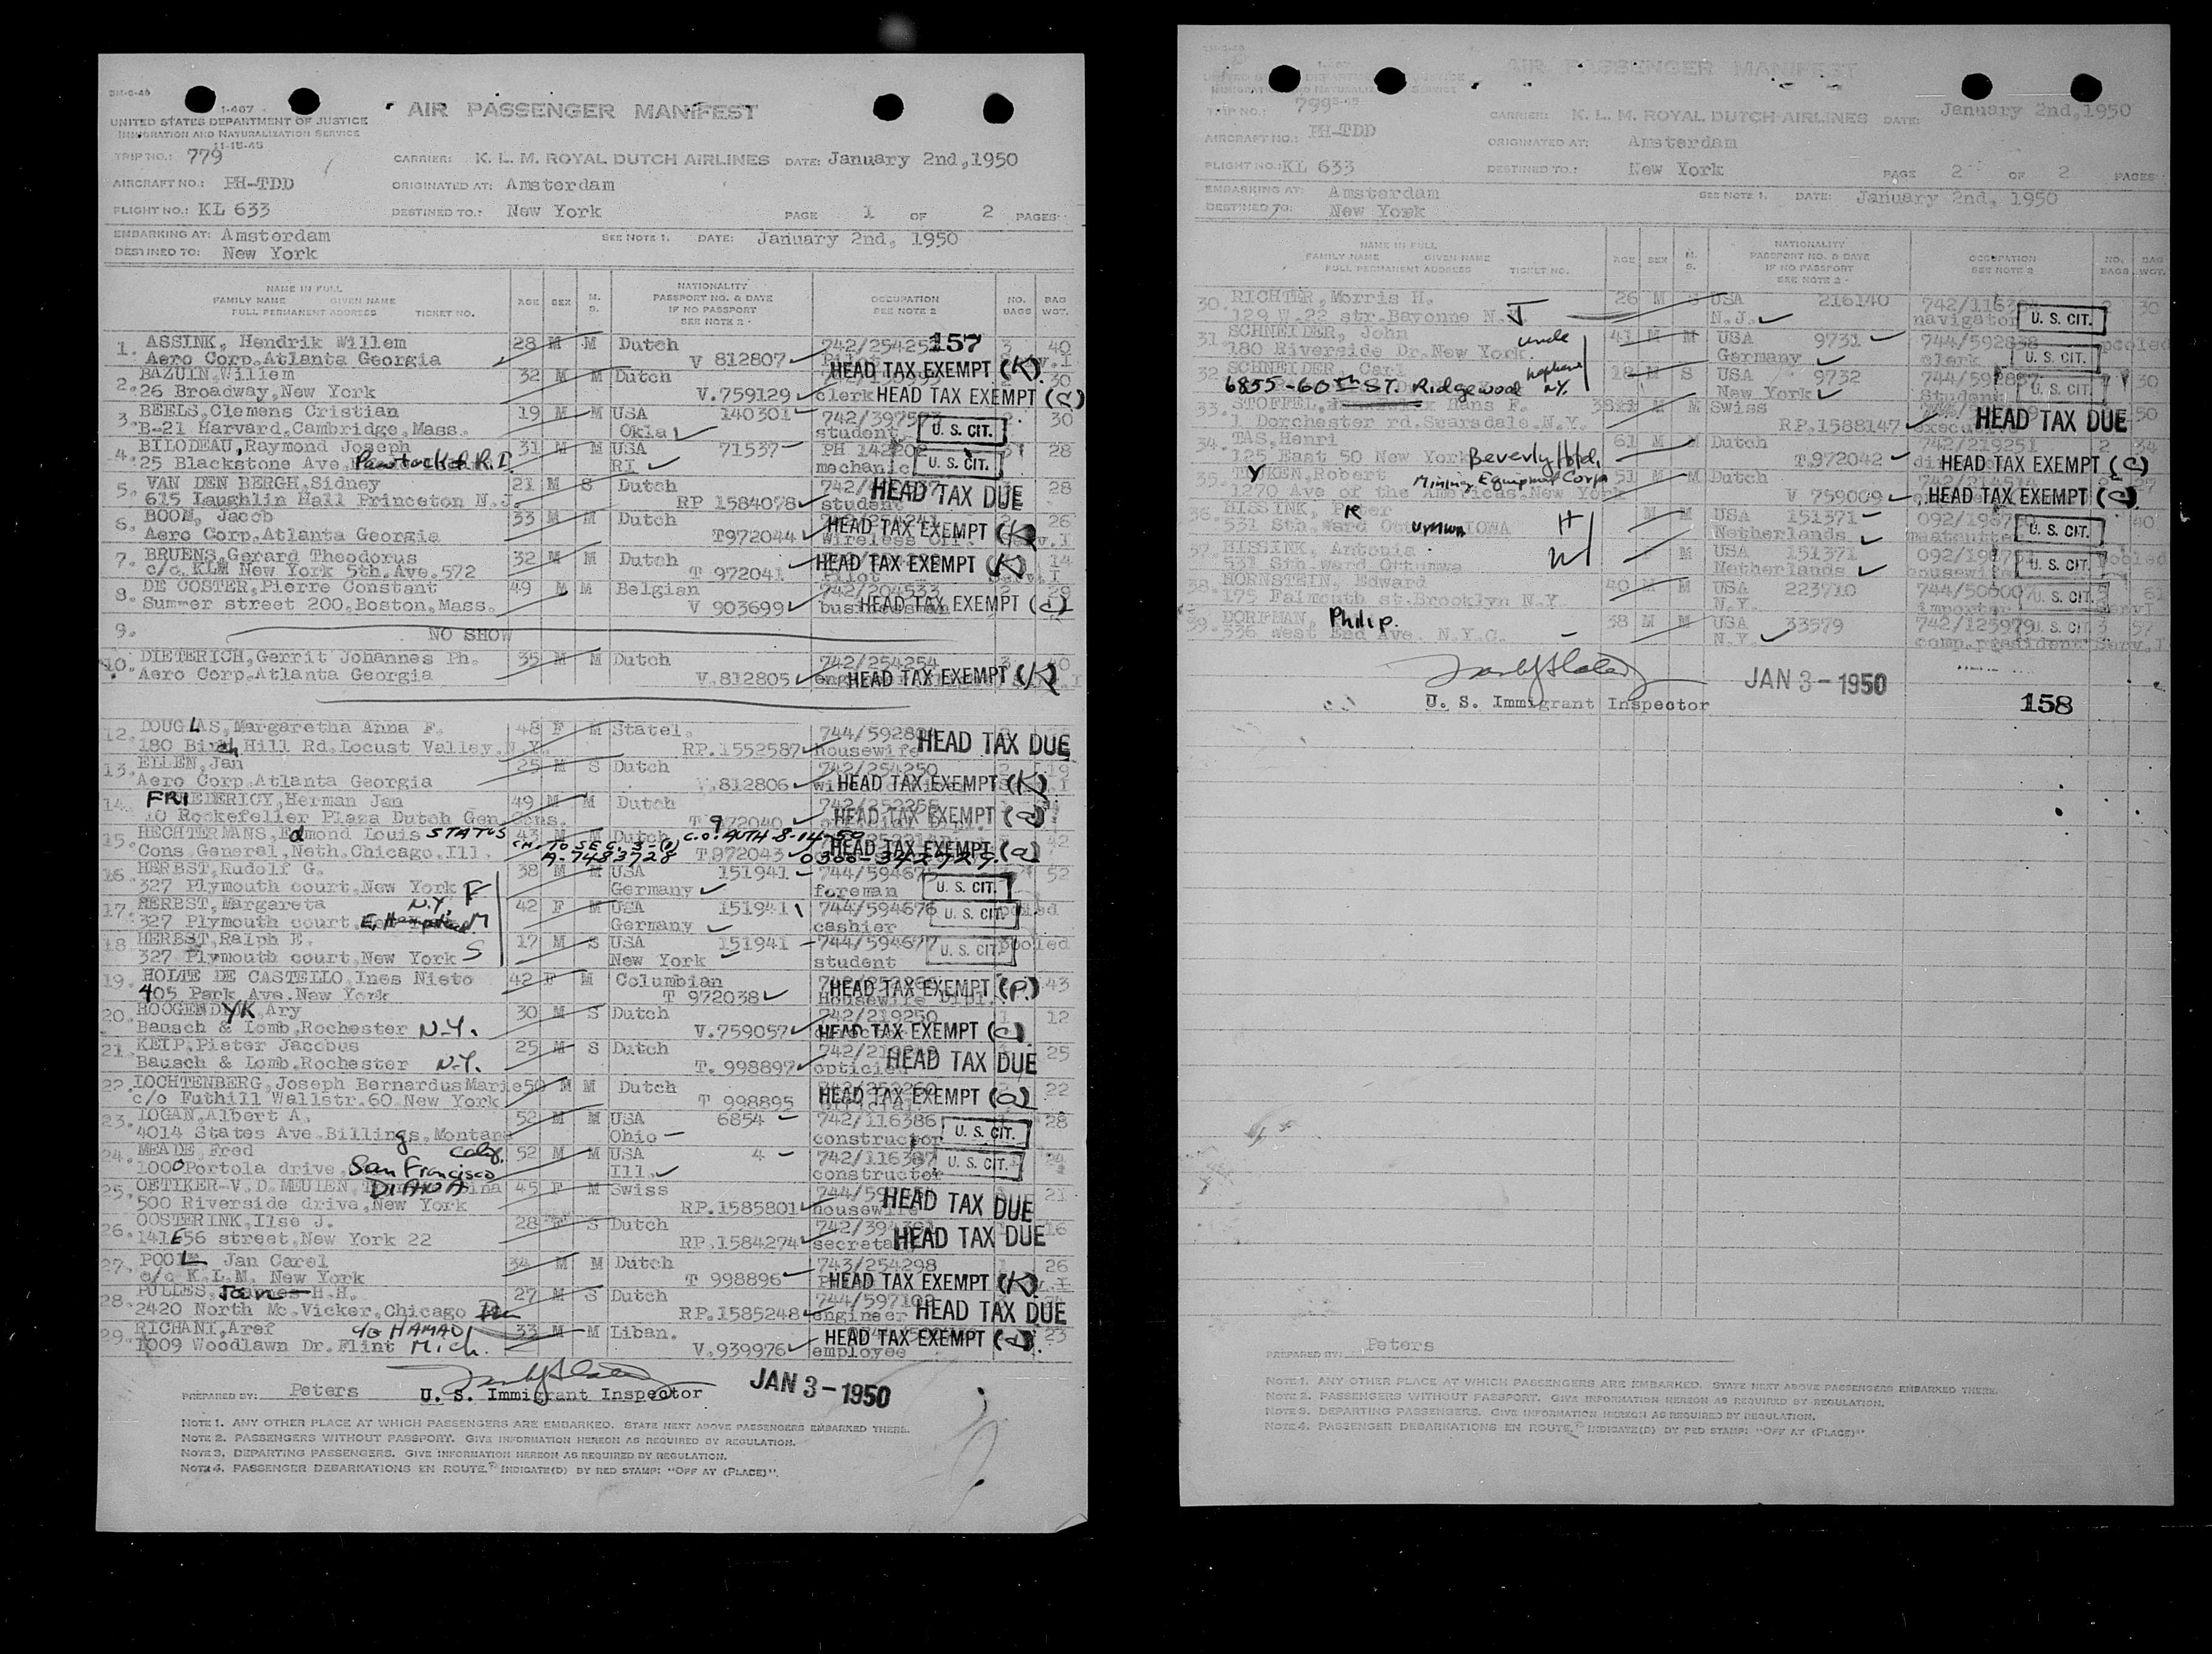 SM-6-46
1-467
AIR PASSENGER MANIFEST
UNITED STATES DEPARTMENT OF JUSTICE
IMMIGRATION AND NATURALIZATION SERVICE
11-15-45
TRIP NO.: 779 CARRIER: K. L. M. ROYAL DUTCH AIRLINES DATE: January 2nd,1950
AIRCRAFT NO.: PH-TDD ORIGINATED AT: Amsterdam
FLIGHT NO.: KL 633 DESTINED TO.: New York PAGE 1 OF 2 PAGES
EMBARKING AT: Amsterdam SEE NOTE 1. DATE: January 2nd, 1950
DESTINED TO: New York
NAME IN FULL
FAMILY NAME GIVEN NAME
FULL PERMANENT ADDRESS TICKET NO.
AGE SEX M. S.
NATIONALITY
PASSPORT NO. & DATE
IF NO PASSPORT
SEE NOTE 2
OCCUPATION
SEE NOTE 2
NO. BAGS BAG WGT.
1. ASSINK, Hendrik Willem 28 M M Dutch 157 3 40
Aero Corp.Atlanta Georgia V 812807 HEAD TAX EXEMPT (K)
2. BAZUIN,Willem 32 M M Dutch 30
26 Broadway,New York V.759129 clerk HEAD TAX EXEMPT (C)
3. BEELS,Clemens Cristian 19 M M USA 140301 30
B-21 Harvard,Cambridge,Mass. Okla student U. S. CIT.
4. BILODEAU,Raymond Joseph 31 M M USA 71537 PH 142202 28
25 Blackstone Ave, R.I. RI mechanic U. S. CIT.
5. VAN DEN BERGH,Sidney 21 M S Dutch 28
615 Laughlin Hall Princeton N.J. RP 1584078 student HEAD TAX DUE
6. BOOM, Jacob 33 M M Dutch 26
Aero Corp.Atlanta Georgia T972044 HEAD TAX EXEMPT (K)
7. BRUENS,Gerard Theodorus 32 M M Dutch 14
c/o KLM New York 5th.Ave.572 T 972041 HEAD TAX EXEMPT (K)
8. DE COSTER,Pierre Constant 49 M M Belgian 742/204533 29
Summer street 200,Boston,Mass. V 903699 HEAD TAX EXEMPT (C)
9. NO SHOW
10. DIETERICH,Gerrit Johannes Ph. 35 M M Dutch 742/254254
Aero Corp.Atlanta Georgia V.812805 HEAD TAX EXEMPT (K)
12. DOUGLAS,Margaretha Anna F. 48 F M Statel.
180 Birch Hill Rd.Locust Valley,N.Y. RP.1552587 housewife HEAD TAX DUE
13. ELLEN,Jan 25 M S Dutch 742/254250 19
Aero Corp.Atlanta Georgia V.812806 HEAD TAX EXEMPT (K)
14. FRIEDERICY,Herman Jan 49 M M Dutch
10 Rockefeller Plaza Dutch Gen.Cons. T 972040 HEAD TAX EXEMPT (a)
15. HECHTERMANS,Edmond Louis STATUS 43 M M Dutch C.O. AUTH 8-14-50 42
Cons General,Neth.Chicago,Ill. CH. TO SEC. 3-(1) A-7483728 T.972043 HEAD TAX EXEMPT (a) 0300-342729
16. HERBST,Rudolf G. 38 M M USA 151941 744/594675 52
327 Plymouth court,New York F Germany foreman U. S. CIT.
17. HERBST,Margareta N.Y. 42 F M USA 151941 744/594676
327 Plymouth court. E. M Germany cashier U. S. CIT.
18. HERBST,Ralph E. 17 M S USA 151941 744/594677 pooled
327 Plymouth court,New York S New York student U. S. CIT.
19. HOLTE DE CASTELLO,Ines Nieto 42 F M Columbian 43
405 Park Ave.New York T 972038 HEAD TAX EXEMPT (P.)
20. HOOGENDYK,Ary 30 M S Dutch 742/219250 1 12
Bausch & Lomb,Rochester N.Y. V.759057 HEAD TAX EXEMPT (C)
21. KEIP,Pieter Jacobus 25 M S Dutch 25
Bausch & Lomb,Rochester N.Y. T. 998897 optician HEAD TAX DUE
22. LOCHTENBERG,Joseph Bernardus Marie 50 M M Dutch 22
c/o Futhill Wallstr.60 New York T 998895 HEAD TAX EXEMPT (a)
23. LOGAN,Albert A. 52 M M USA 6854 742/116386 28
4014 States Ave.Billings,Montana Ohio constructor U. S. CIT.
24. MEADE,Fred Calif. 52 M M USA 4 742/116387
1000 Portola drive, San Francisco Ill. constructor U. S. CIT.
25. OETIKER-V.D.MEULEN, DIANA 45 F M Swiss 21
500 Riverside drive,New York RP.1585801 housewife HEAD TAX DUE
26. OOSTERINK,Ilse J. 28 F S Dutch 16
141E56 street,New York 22 RP.1584274 HEAD TAX DUE
27. POOL Jan Carel 34 M M Dutch 743/254298 26
c/o K.L.M. New York T 998896 HEAD TAX EXEMPT (K)
28. PULLES, H.H. 27 M S Dutch
2420 North Mc.Vicker,Chicago RP.1585248 engineer HEAD TAX DUE
29. RICHANI,Aref c/o HAMAD 33 M M Liban. 23
1009 Woodlawn Dr.Flint Mich. V.939976 employee HEAD TAX EXEMPT
PREPARED BY: Peters U. S. Immigrant Inspector JAN 3 - 1950
NOTE 1. ANY OTHER PLACE AT WHICH PASSENGERS ARE EMBARKED. STATE NEXT ABOVE PASSENGERS EMBARKED THERE.
NOTE 2. PASSENGERS WITHOUT PASSPORT. GIVE INFORMATION HEREON AS REQUIRED BY REGULATION.
NOTE 3. DEPARTING PASSENGERS. GIVE INFORMATION HEREON AS REQUIRED BY REGULATION.
NOTE 4. PASSENGER DEBARKATIONS EN ROUTE. INDICATE(D) BY RED STAMP: "OFF AT (PLACE)".
AIR PASSENGER MANIFEST
TRIP NO.: 799 CARRIER: K. L. M. ROYAL DUTCH AIRLINES DATE: January 2nd,1950
AIRCRAFT NO.: PH-TDD ORIGINATED AT: Amsterdam
FLIGHT NO.: KL 633 DESTINED TO.: New York PAGE 2 OF 2 PAGES
EMBARKING AT: Amsterdam SEE NOTE 1. DATE: January 2nd, 1950
DESTINED TO: New York
NAME IN FULL
FAMILY NAME GIVEN NAME
FULL PERMANENT ADDRESS TICKET NO.
AGE SEX M. S.
NATIONALITY
PASSPORT NO. & DATE
IF NO PASSPORT
SEE NOTE 2
OCCUPATION
SEE NOTE 2
NO. BAGS BAG WGT.
30. RICHTER,Morris H. 26 M S USA 216140 2 30
129 W.22 str.Bayonne N.J. N.J. navigator U. S. CIT.
31. SCHNEIDER, John uncle 41 M M USA 9731 pooled
180 Riverside Dr.New York. Germany clerk U. S. CIT.
32 SCHNEIDER, Carl nephew 18 M S USA 9732 30
6855-60th ST. Ridgewood N.Y. New York Student U. S. CIT.
33. STOFFEL, Hans F. M M Swiss 50
1 Dorchester rd.Scarsdale,N.Y. RP.1588147 HEAD TAX DUE
34. TAS,Henri 61 M M Dutch 742/219251 2 34
125 East 50 New York Beverly Hotel. T.972042 HEAD TAX EXEMPT (C)
35. Robert Mining Equipment Corp 51 M M Dutch 27
1270 Ave of the Americas,New York V 759009 HEAD TAX EXEMPT (C)
36. HISSINK, H M M USA 151371 40
531 Sth.Ward IOWA Netherlands U. S. CIT.
37. HISSINK, Antonia W M USA 151371 pooled
531 Sth.Ward Ottumwa Netherlands housewife U. S. CIT.
38. HORNSTEIN, Edward 40 M M USA 223710 61
175 Falmouth st.Brooklyn N.Y. N.Y. importer U. S. CIT.
39. DORFMAN, Philip. 38 M M USA 33579 742/125979 3 57
336 West End Ave. N.Y.C. N.Y. comp.president U. S. CIT. Serv.I
U. S. Immigrant Inspector JAN 3 - 1950
158
PREPARED BY: Peters
NOTE 1. ANY OTHER PLACE AT WHICH PASSENGERS ARE EMBARKED. STATE NEXT ABOVE PASSENGERS EMBARKED THERE.
NOTE 2. PASSENGERS WITHOUT PASSPORT. GIVE INFORMATION HEREON AS REQUIRED BY REGULATION.
NOTE 3. DEPARTING PASSENGERS. GIVE INFORMATION HEREON AS REQUIRED BY REGULATION.
NOTE 4. PASSENGER DEBARKATIONS EN ROUTE. INDICATE(D) BY RED STAMP: "OFF AT (PLACE)".